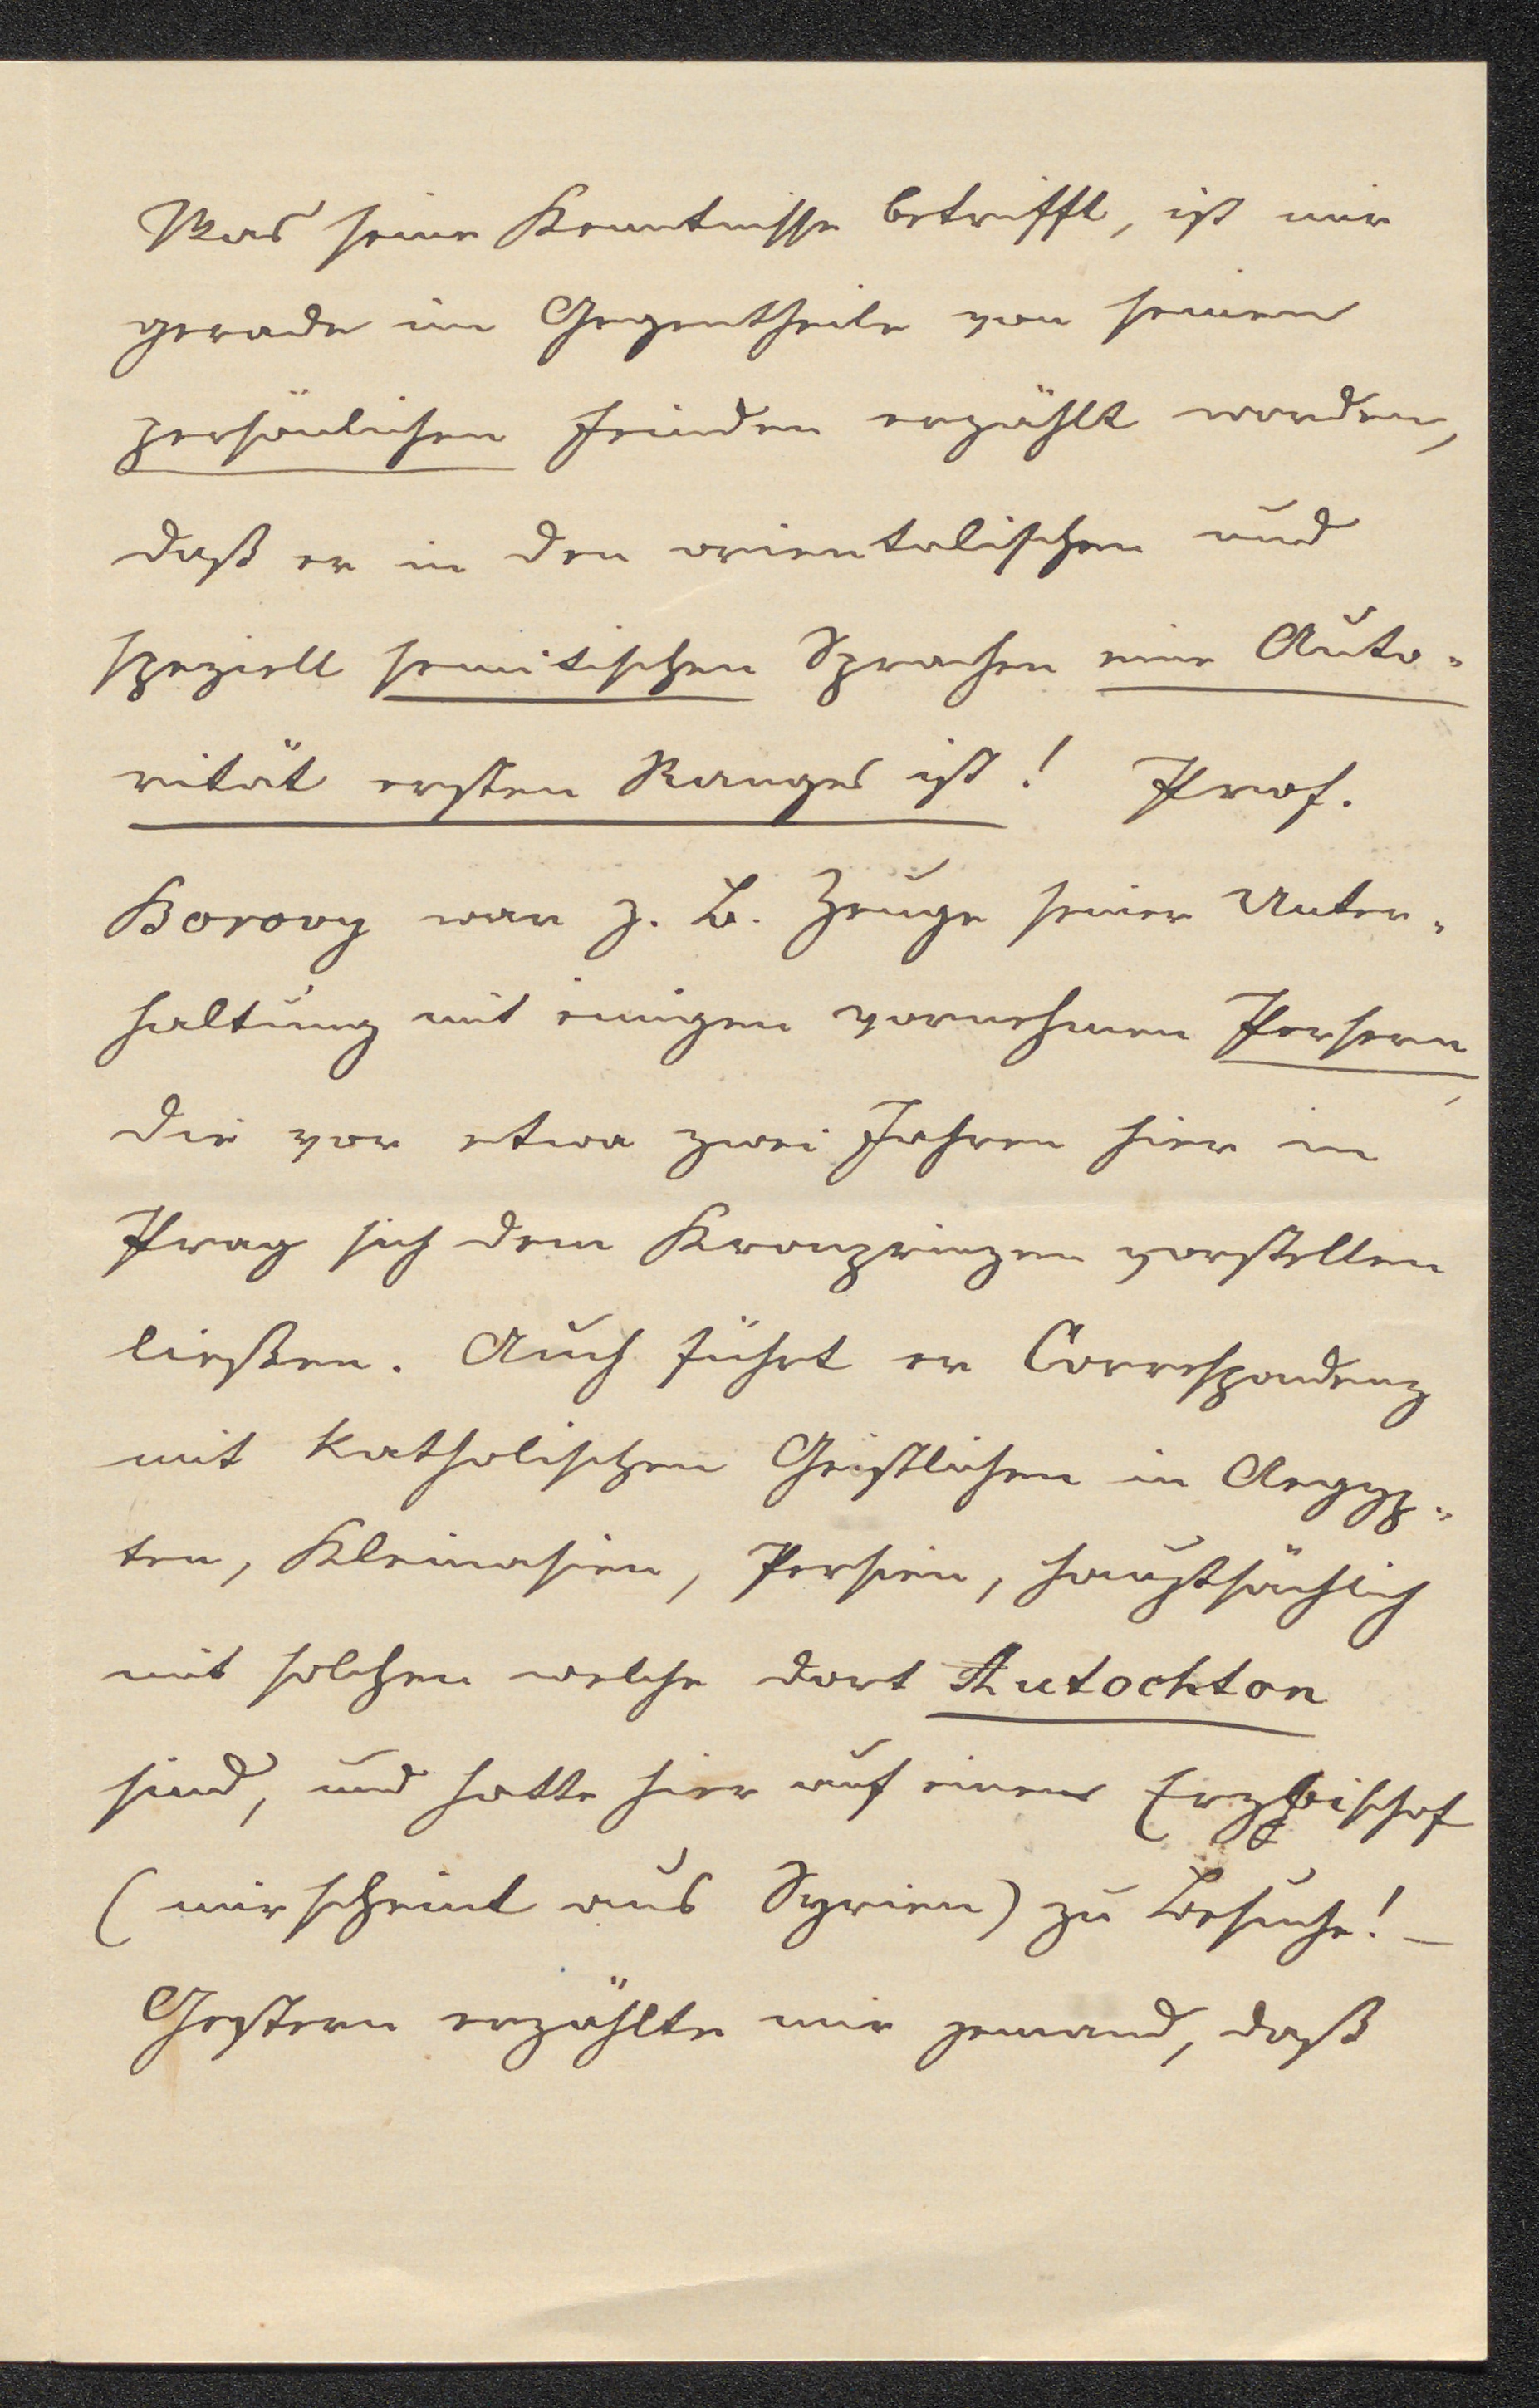 Was seine Kenntnisse betrifft, ist mir
gerade im Gegentheile von seinen
persönlichen Feinden erzählt worden,
daß er in den orientalischen und
speziell semitischen Sprachen eine Auto-
rität ersten Ranges ist! Prof.
Borovy war z. B. Zeuge seiner Unter-
haltung mit einigen vornehmen Persern,
die vor etwa zwei Jahren hier in
Prag sich dem Kronprinzen vorstellen
ließen. Auch führt er Correspondenz
mit katholischen Geistlichen in Aegyp-
ten, Kleinasien, Persien, hauptsächlich
mit solchen welche dort Autochton
sind, und hatte hier auf einen Erzbischof
(mir scheint aus Syrien) zu Besuche! –
Gestern erzählte mir jemand, daß